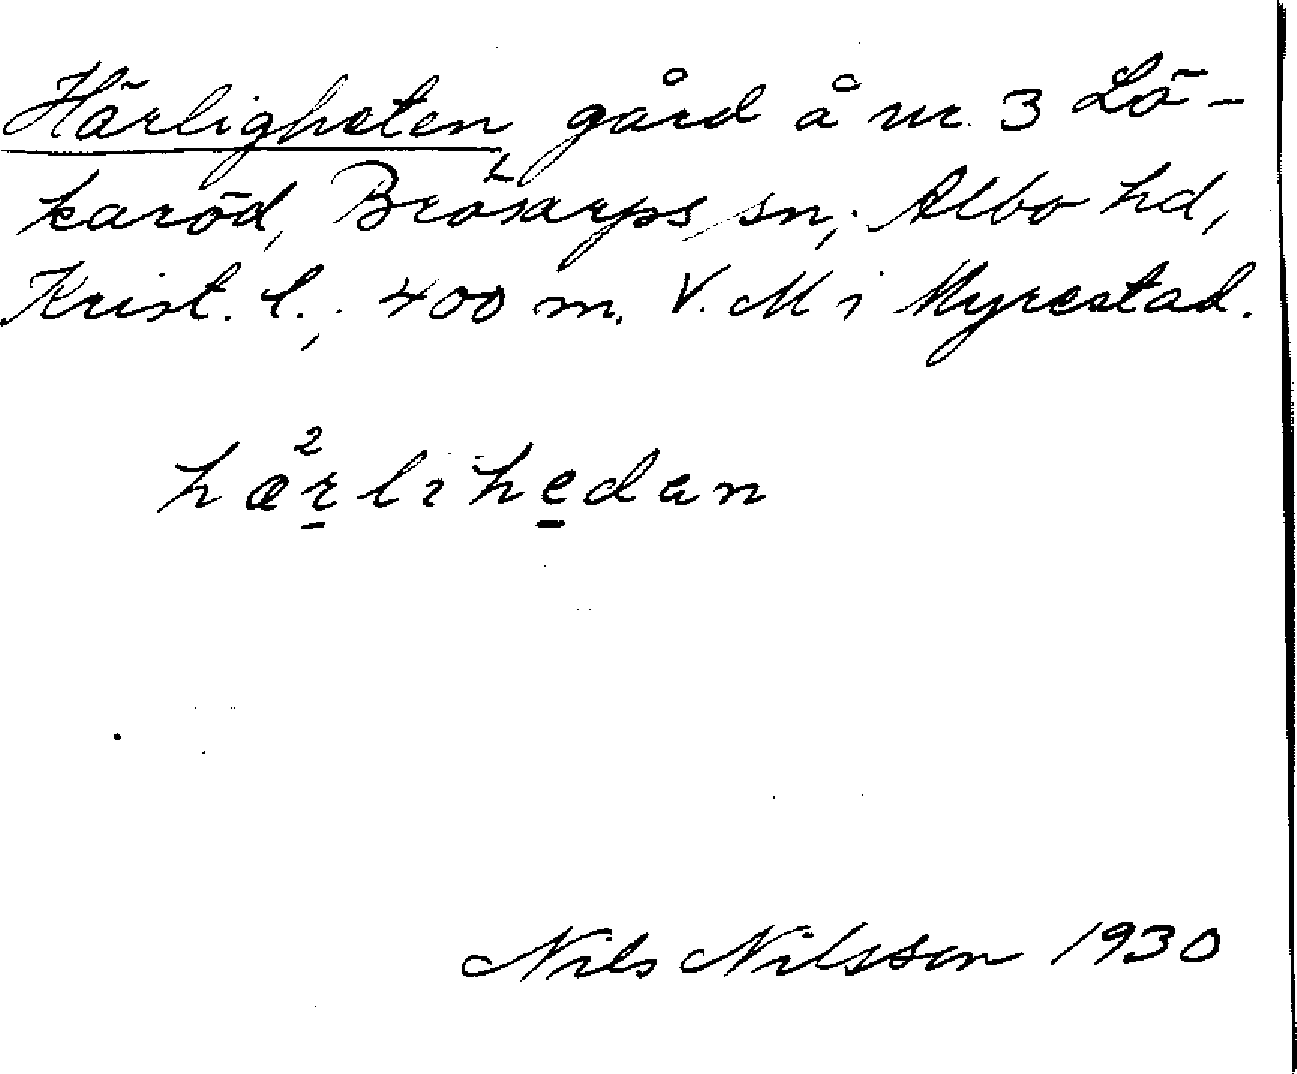 Härligheten gård å nr. 3 Lö-
karöd, Brösarps sn, Albo hd,
Krist. l., 400 m. V. M i Myrestad.
hæ²rlihedan
Nils Nilsson 1930